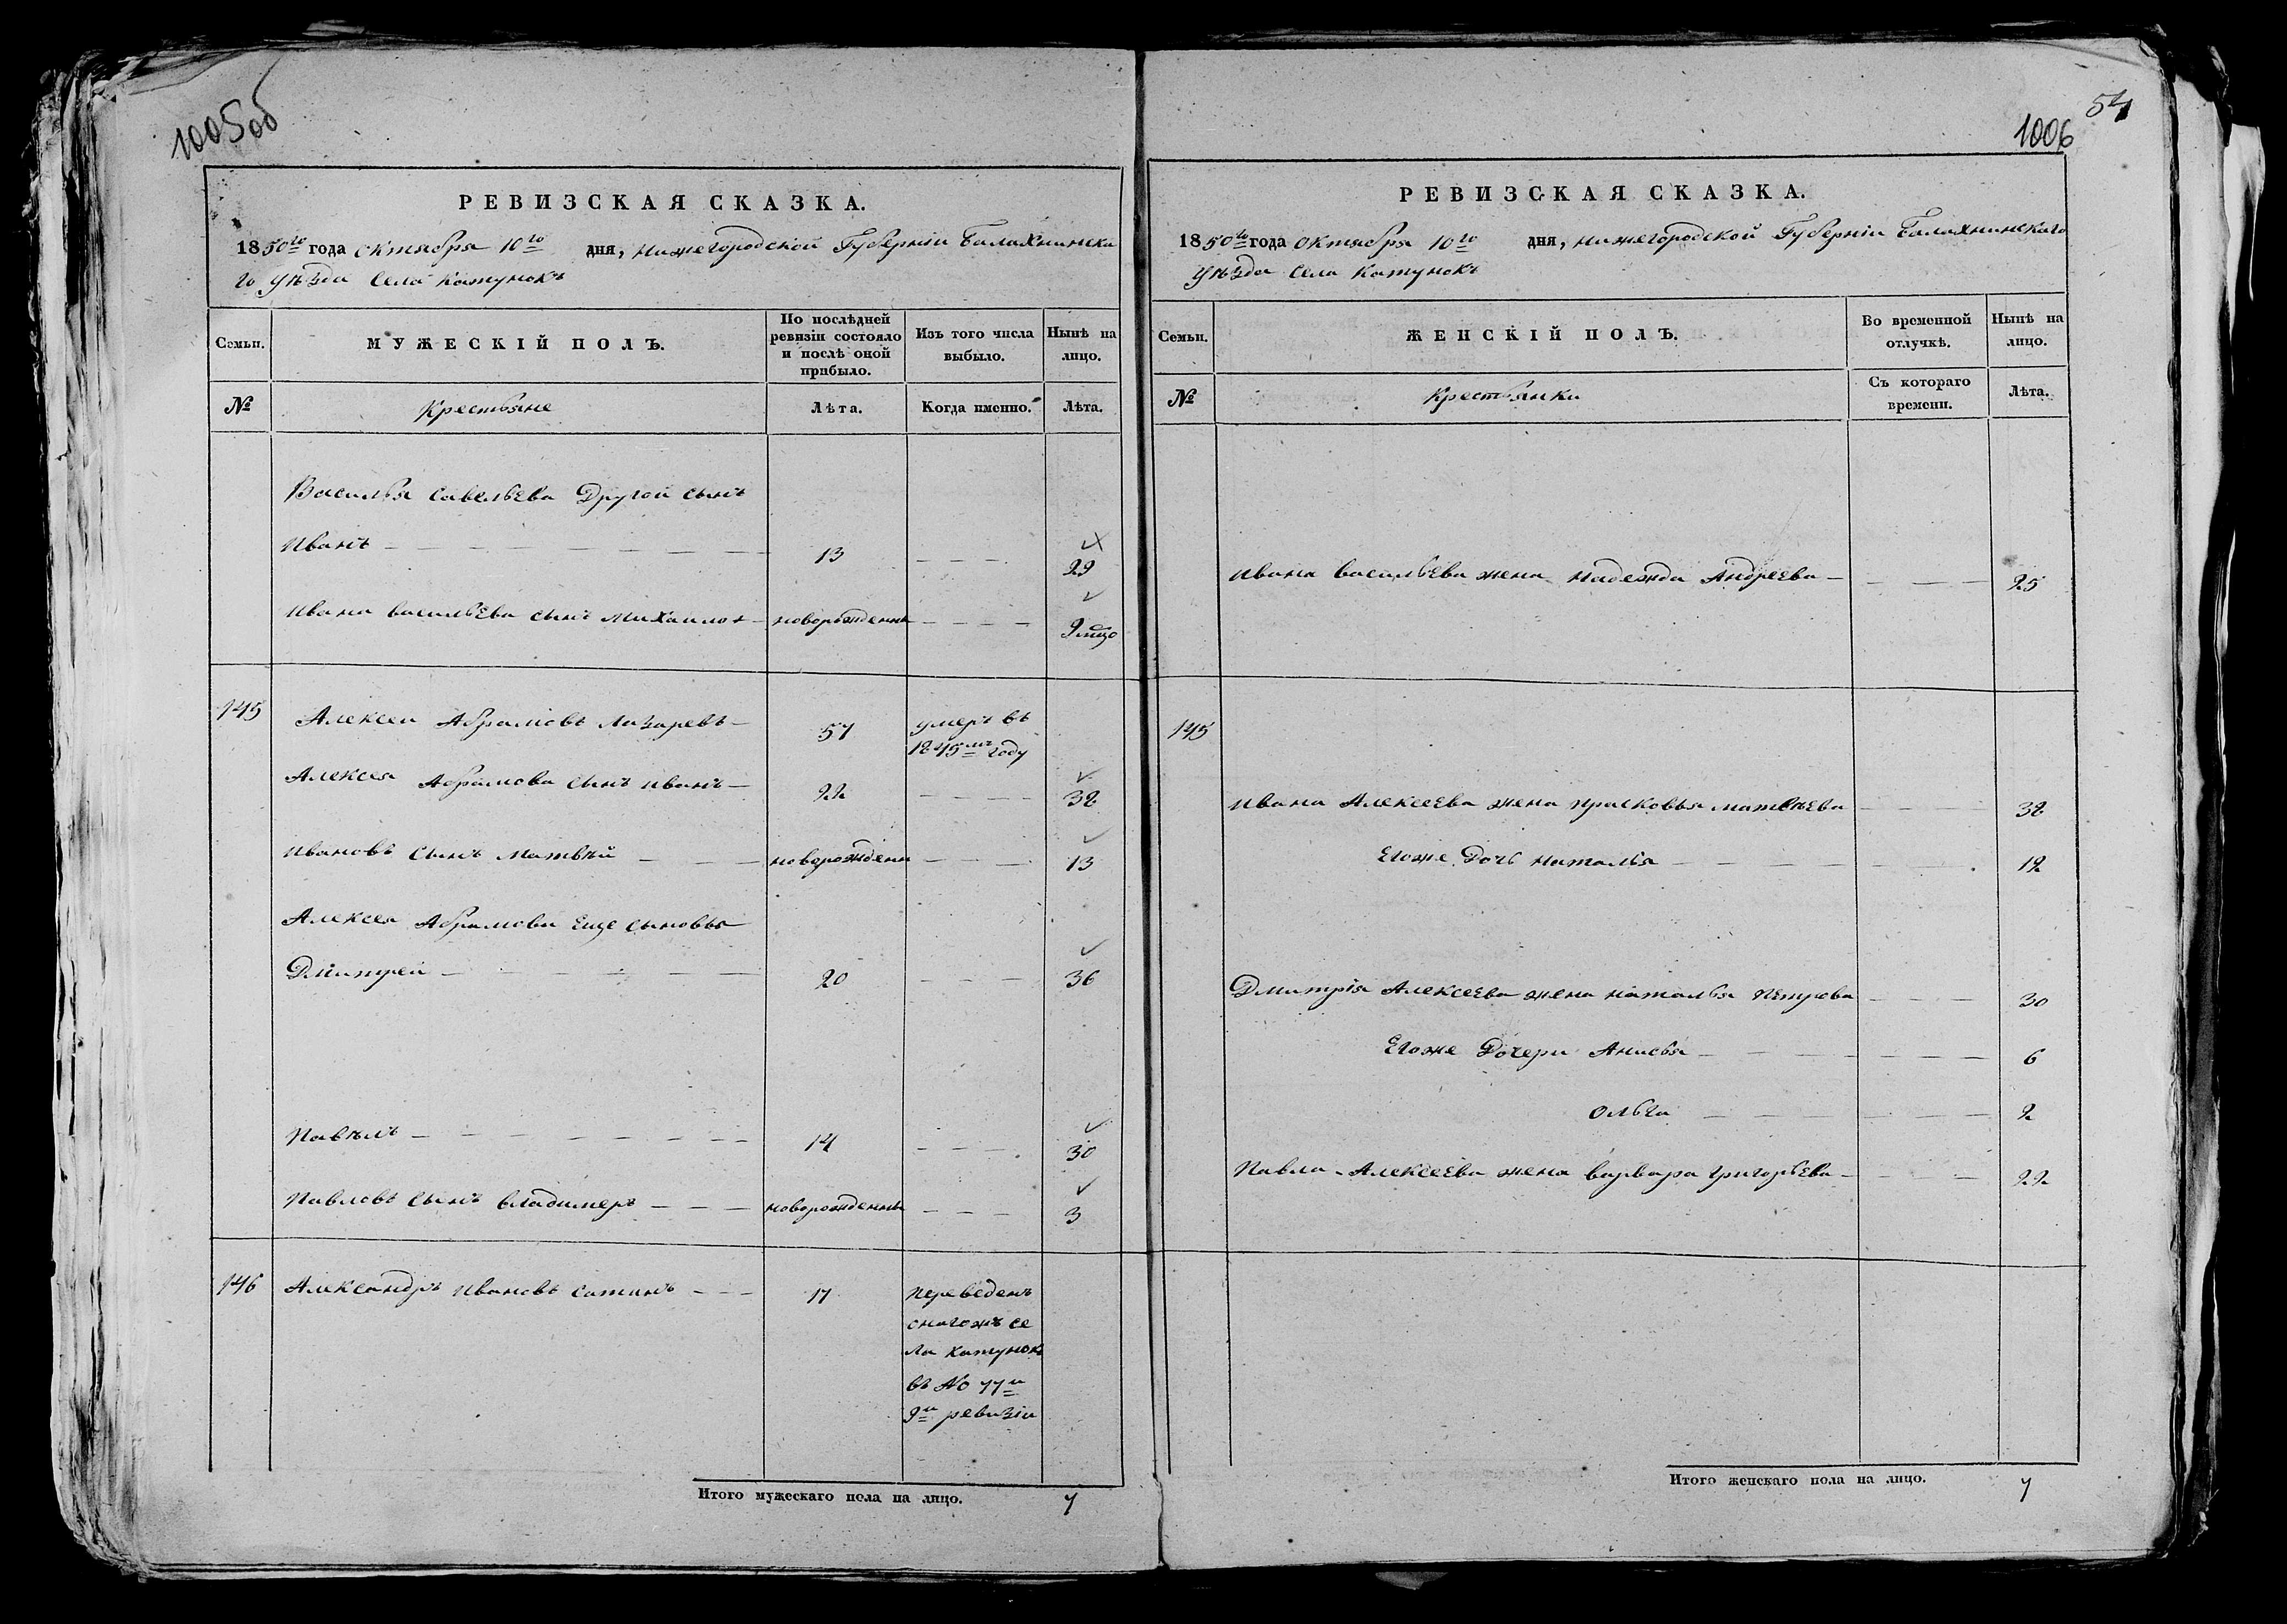 1005об
РЕВИЗСКАЯ СКАЗКА.
1850го года Октября 10го дня, Нижегородской Губерніи Балахнинска
го Уѣзда Села Катунокъ
Семьи.
МУЖЕСКІЙ ПОЛЪ.
По послѣдней
ревизіи состояло
и послѣ оной
прибыло.
Изъ того числа
выбыло.
Нынѣ на
лицо.
№
Крестьяне
Лѣта.
Когда именно.
Лѣта.
Василья Савельева Другой сынъ
Иванъ 13 29
Ивана Васильева сынъ Михаило новорожденны
145 Алексей Абрамовъ Лазаревъ 57 умеръ въ
1845мъ году
Алексея Абрамова сынъ Иванъ 22 38
Ивановъ сынъ Матвѣй новорожден 13
Алексея Абрамова Еще сыновья
Дмитрей 20 36
Павѣлъ 14 30
Павловъ сынъ Владимеръ новорожденны 3
146 Александръ Ивановъ Сатинъ 17 переведенъ
сногожъ се
ла Катунокъ
въ № 77й
9й ревизіи
Итого мужескаго пола на лицо. 7
54
1006
РЕВИЗСКАЯ СКАЗКА.
1850го года Октября 10го дня, Нижегородской Губерніи Балахнинскаго
Уѣзда Села Катунокъ
Семьи.
ЖЕНСКІЙ ПОЛЪ.
Во временной
отлучкѣ.
Нынѣ на
лицо.
№
Крестьянки
Съ котораго
времени.
Лѣта.
Ивана Васильева жена Надежда Андреева 25
145
Ивана Алексеева жена Прасковья Матвѣева 38
Егоже Дочь Наталья 12
Дмитрія Алексеева жена Наталья Петрова 30
Егоже Дочери Анисья 6
Ольга 2
Павла Алексеева жена Варвара Григорьева 22
Итого женскаго пола на лицо. 7